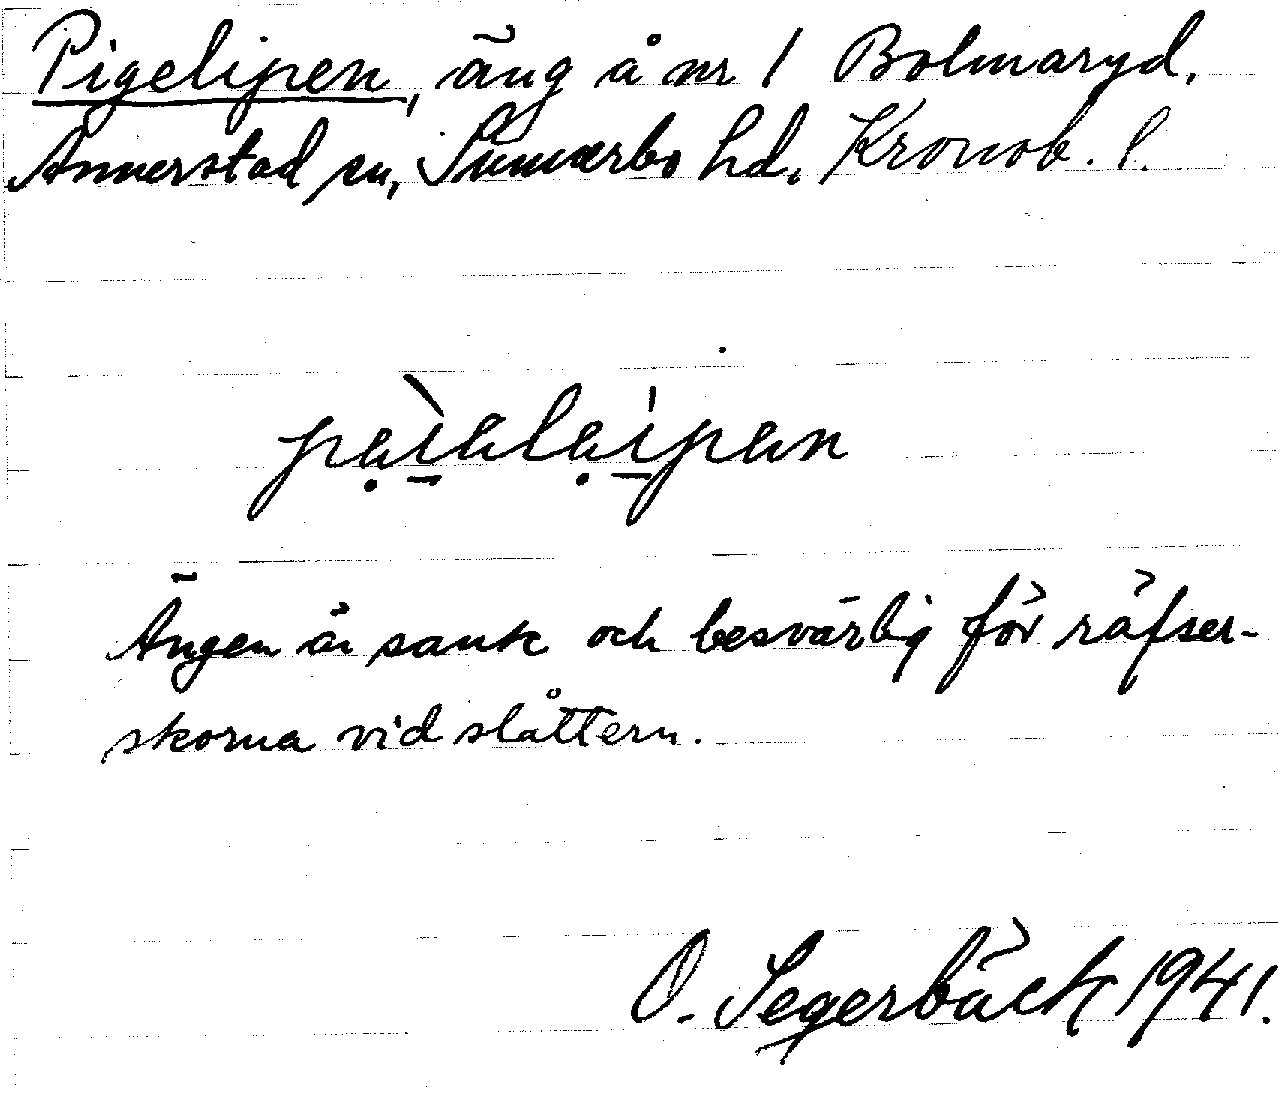 Pigelipen, äng å nr 1 Bolmaryd.
Annerstad sn, Sunnerbo hd. Kronob. l.
Ängen är sank och besvärlig för räfser-
skorna vid slåttern.
O. Segerbäck 1941.